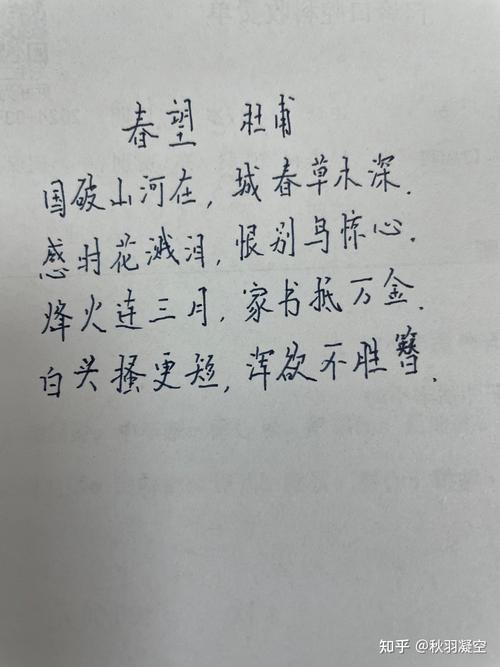 春望 杜甫
国破山河在，城春草木深．
感时花溅泪，恨别鸟惊心．
烽火连三月，家书抵万金．
白头搔更短，浑欲不胜簪．
知乎 @秋羽凝空